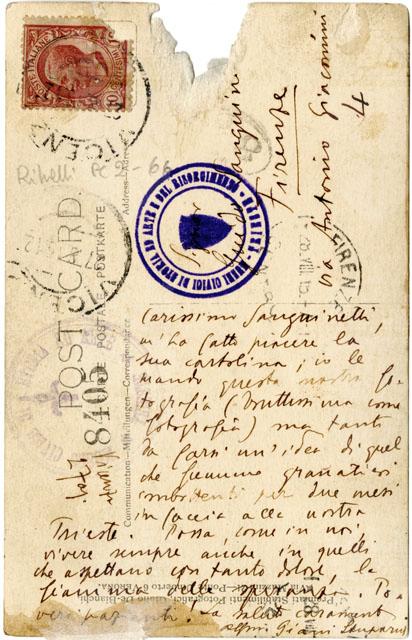 POSTE ITALIANE
VICENZA
Ribelli PC 2-66
POST CARD
POSTALE POSTKARTE
Address
8405
Communication-Mittheilungen-Correspondence
CIVICI DI STORIA ED ARTE E DEL RISORGIMENTO
FIRENZE
Signor
Guido Sanguine
Firenze
Via Antonio Giacomini
4
Carissimo Sanguinetti,
m'ha fatto piacere la
sua cartolina; io le
mando questa nostra fo-
tografia (bruttissima come
fotografia) ma tanto
da farsi un'idea di quel
che fummo granatieri
combattenti per due mesi
in faccia alla nostra
Trieste. Possa, come in noi,
vivere sempre anche in quelli
che aspettano con tanto dolore, la
fiamma della speranza.
La saluto
Giani Stuparich